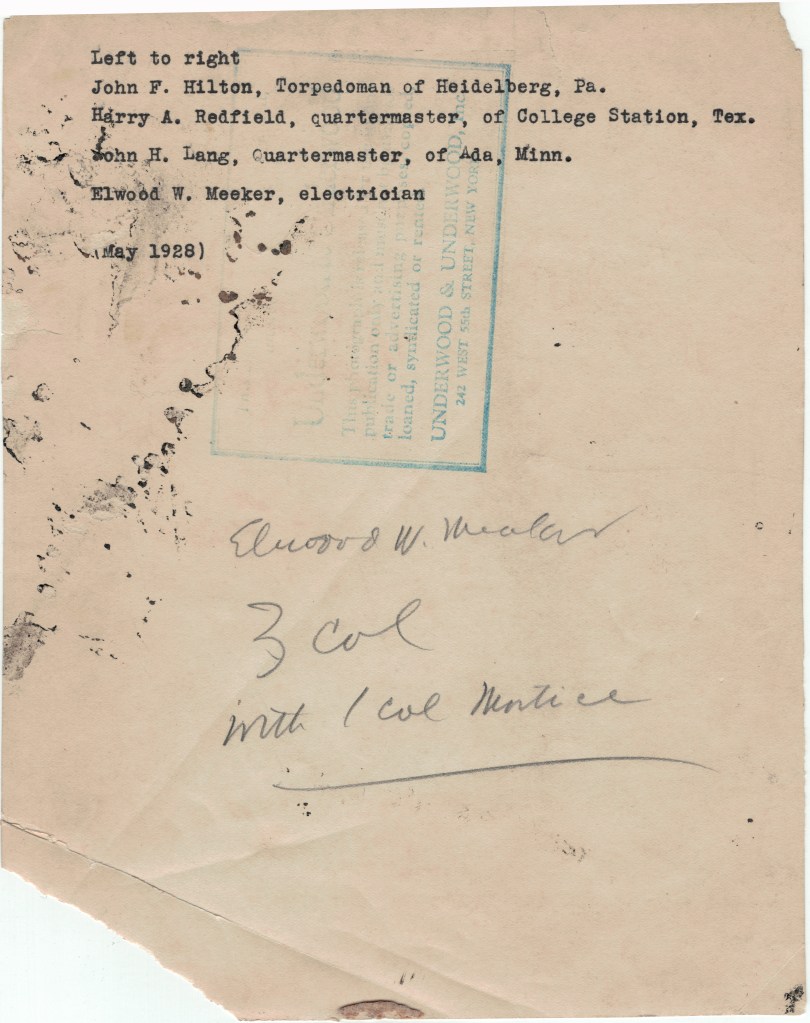 Left to right
John F. Hilton, Torpedoman of Heidelberg, Pa.
Harry A. Redfield, quartermaster, of College Station, Tex.
John H. Lang, Quartermaster, of Ada, Minn.
Elwood W. Meeker, electrician
(May 1928)
publication only
trade or advertising
loaned, syndicated or
UNDERWOOD & UNDERWOOD, Inc.
242 WEST 55th STREET, NEW YORK
Elwood W. Meeker
3 col
with 1 col Mortice